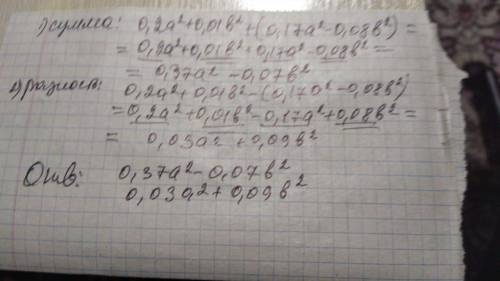 1) сумма: 0,2a² + 0,01b² + (0,17a² - 0,08b²) =
= 0,2a² + 0,01b² + 0,17a² - 0,08b² =
= 0,37a² - 0,07b²
2) разност: 0,2a² + 0,01b² - (0,17a² - 0,08b²)
= 0,2a² + 0,01b² - 0,17a² + 0,08b² =
= 0,03a² + 0,09b²
Отв: 0,37a² - 0,07b²
0,03a² + 0,09b²